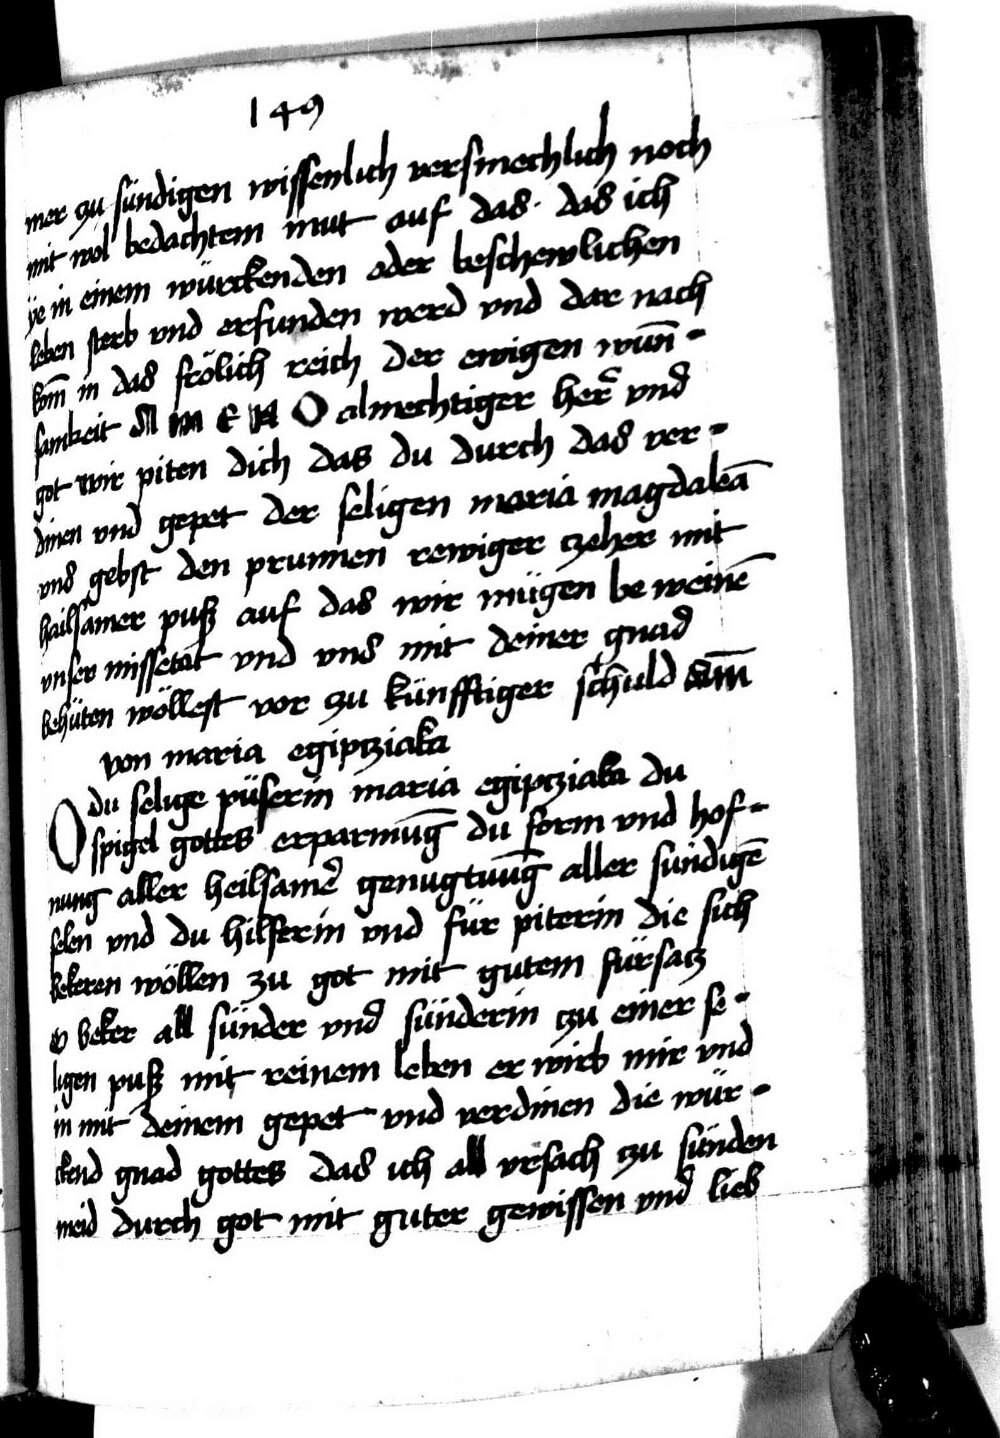 149
mer zu sündigen wissenlich versmechlich noch
mit wol bedachtem mut auf das · das ich
ÿe in einem würckenden oder beschewlichen
leben sterb vnd erfunden werd vnd dar nach
kom̄ in das frölich reich der ewigen wun̄-
samkeit AMEN O almechtiger her͛ vnd
got wir piten dich das du durch das ver-
dinen vnd gepet der seligen maria magdaleā
vns gebst den prunnen rewiger zeher mit
hailsamer pusz auf das wir mügen be weinē
vnser missetat vnd vns mit deiner gnad
behüten wöllest vor zu künfftiger schuld am̄
von maria egipcziaka
O du selige püserin maria egipcziaka du
spigel gottes erparmūg du form vnd hof-
nung aller heilsamer͛ genugtuūg aller sündigē
selen vnd du hilferin vnd für piterin die sich
bekeren wöllen zu got mit gutem fürsacz
o beker all sünder vnd sünderin zu einer se-
ligen pusz mit reinem leben er wirb mir vnd
in mit deinem gepet vnd verdinen die wür-
ckend gnad gottes das ich all vrsach zu sünden
meid durch got mit guter gewissen vnd lieb